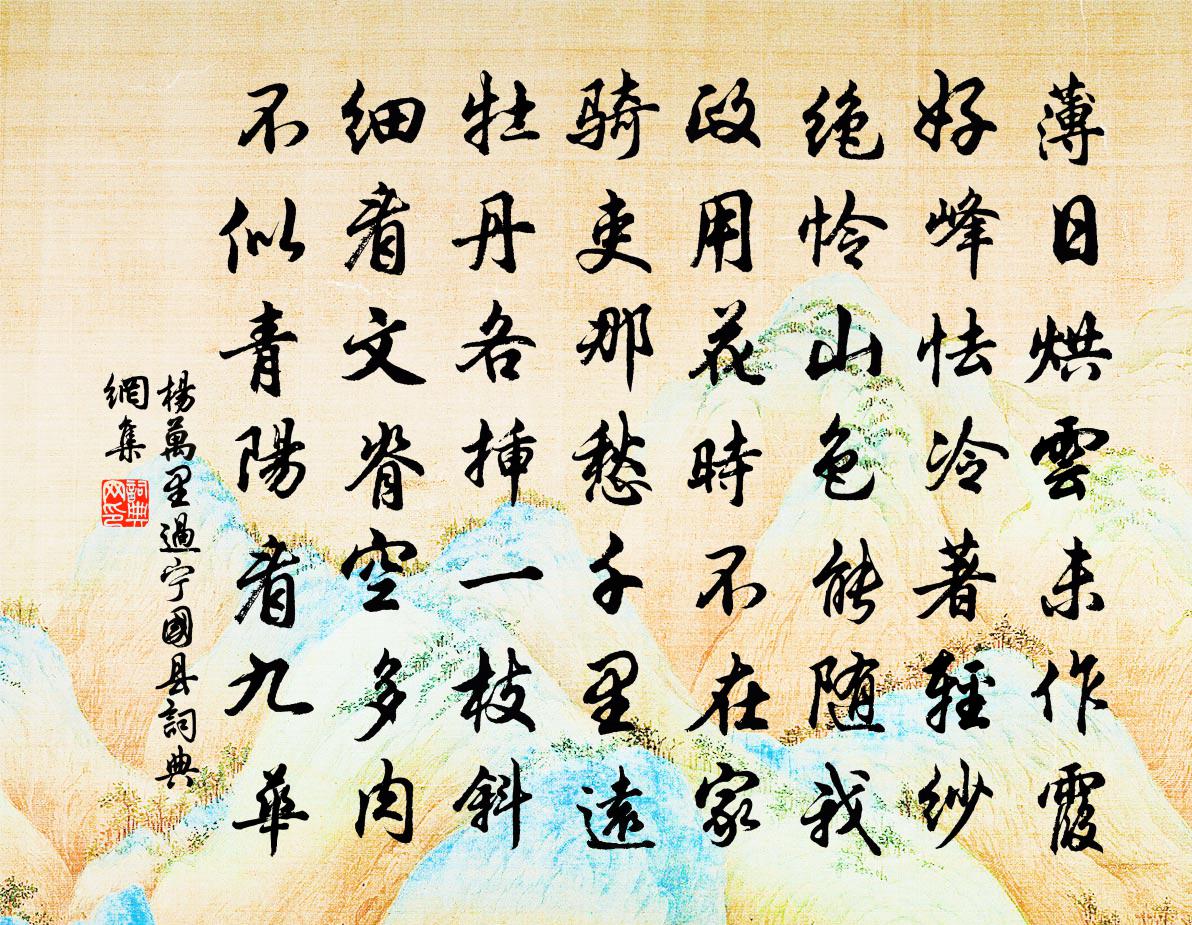 薄日烘雲未作霞
好峰怯冷著輕紗
絶怜山色能随我
政用花時不在家
騎吏那愁千里遠
牡丹各插一枝斜
細看文脊空多肉
不似青陽看九華
楊萬里過宁國县詞典
網集
詞典網印